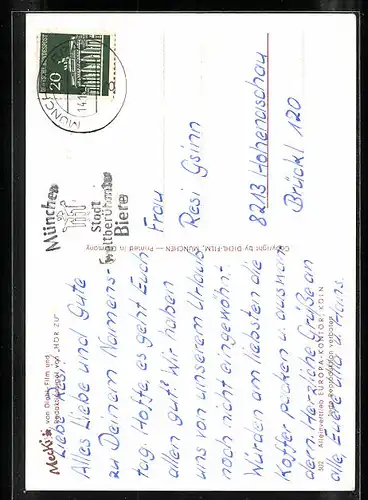 Mecki
von Diehl Film und
Redaktionsigel von „HÖR ZU“
Liebe
Alles Liebe und Gute
zu Deinem Namens-
tag. Hoffe, es geht Euch
allen gut! Wir haben
uns von unserem Urlaub
noch nicht eingewöhnt.
Würden am liebsten die
Koffer packen u. auswan-
dern. Herzliche Grüße an
alle, Eure u. Hans.
Copyright by DIEHL-FILM, MÜNCHEN — Printed in Germany
502 Alleinvertrieb EUROPA-KONTOR, KÖLN
Jede Reproduktion verboten
DEUTSCHE BUNDESPOST
20
MÜNCHEN
14.
München
Stadt
weltberühmter
Biere
Frau
Resi Gsinn
8213 Hohenaschau
Brückl 120